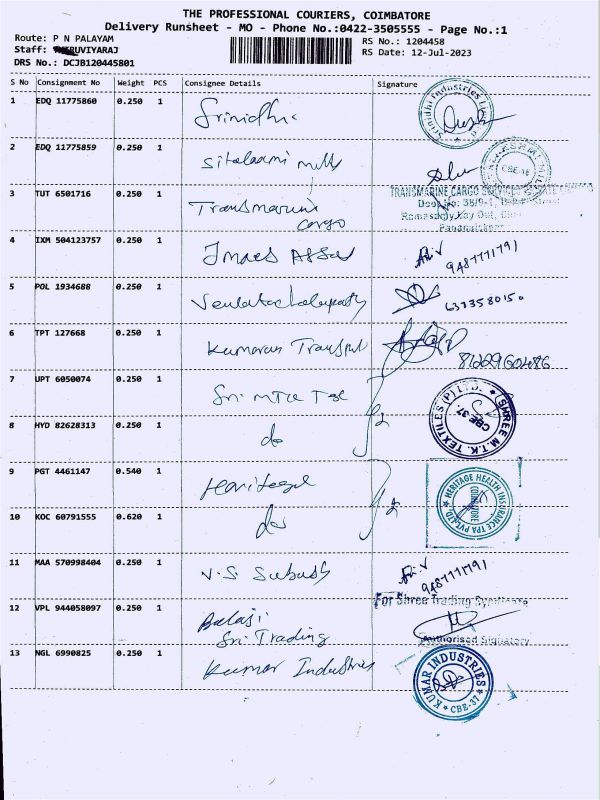 THE PROFESSIONAL COURIERS, COIMBATORE
Delivery Runsheet - MO - Phone No.:0422-3505555 - Page No.:1
Route: P N PALAYAM
RS No.: 1204458
Staff: RUVIYARAJ
RS Date: 12-Jul-2023
DRS No.: DCJB120445801
S No Consignment No Weight PCS Consignee Details Signature
1 EDQ 11775860 0.250 1 Srinidhi
Srinidhi Industries
2 EDQ 11775859 0.250 1 Sitalaxmi mills
CBE-18
3 TUT 6501716 0.250 1 Transmarine
cargo
TRANSMARINE CARGO SERVICES
Door No: 38/9-1,
Ramasamy Lay Out,
4 IXM 504123757 0.250 1 Imaes Assad
9487771791
5 POL 1934688 0.250 1 Venkatachalapathy
6 TPT 127668 0.250 1 Kumaran Transport
7 UPT 6050074 0.250 1 Sri MTK Tex
SHREE M.T.K. TEXTILES (P) LTD. CBE 37.
8 HYD 82628313 0.250 1 do
9 PGT 4461147 0.540 1 Heritage
HERITAGE HEALTH INSURANCE TPA PVT. LTD. COIMBATORE
10 KOC 60791555 0.620 1 do
11 MAA 570998404 0.250 1 V.S. Subash
9487771791
12 VPL 944058097 0.250 1 Balaji
Sri Trading
For Shree Trading Syndicate
Authorised Signatory
13 NGL 6990825 0.250 1 Kumar Industries
KUMAR INDUSTRIES CBE-37